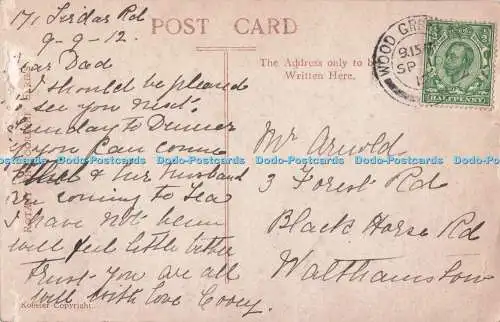 171 Sirdar Rd
9-9-12.
Dear Dad
I should be pleased
to see you next
Sunday to Dinner
if you Can come
& her Husband
are coming to Tea
I have not been
well feel little better
trust you are all
well with love
Kohler Copyright.
POST CARD
The Address only to be
Written Here.
WOOD GREEN
9.15
SP
HALFPENNY
Mr Arnold
3 Forest Rd
Black Horse Rd
Walthamstow
Dodo-Postcards Dodo-Postcards Dodo-Postcards Dodo-Postcards Dodo-Postcards Dodo-Postcards